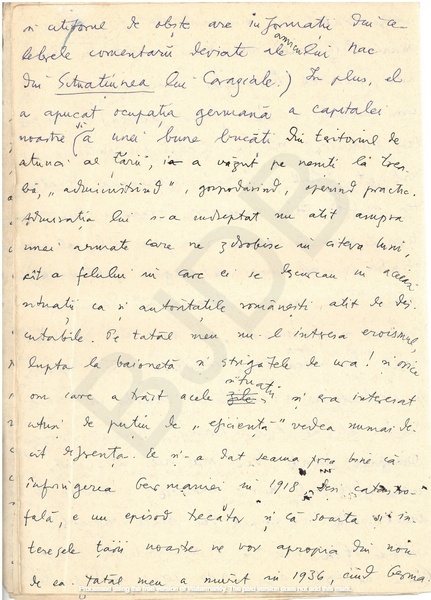 și cititorul de obște are informații din ce-
lebrele comentarii deviate ale amicului Nae
din Situațiunea lui Caragiale.) În plus, el
a apucat ocupația germană a capitalei
noastre (și a unei bune bucăți din teritoriul de
atunci al țării, a văzut pe nemți la trea-
bă, „administrînd", gospodărind, operînd practic.
Admirația lui s-a îndreptat nu atît asupra
unei armate care ne zdrobise în cîteva luni,
cît a felului în care ei se descurcau în aceeași
situații ca și autoritățile românești atît de dis-
cutabile. Pe tatăl meu nu-l interesa eroismul,
lupta la baionetă și strigătele de ura! și orice
om care a trăit acele situații și era interesat
cît de puțin de „eficiență" vedea numai de-
cît diferența. El și-a dat seama prea bine că
înfrîngerea Germaniei în 1918, deși catastro-
fală, e un episod trecător și că soarta și in-
teresele țării noastre ne vor apropia din nou
de ea. Tatăl meu a murit în 1936, cînd Germa
BJDB